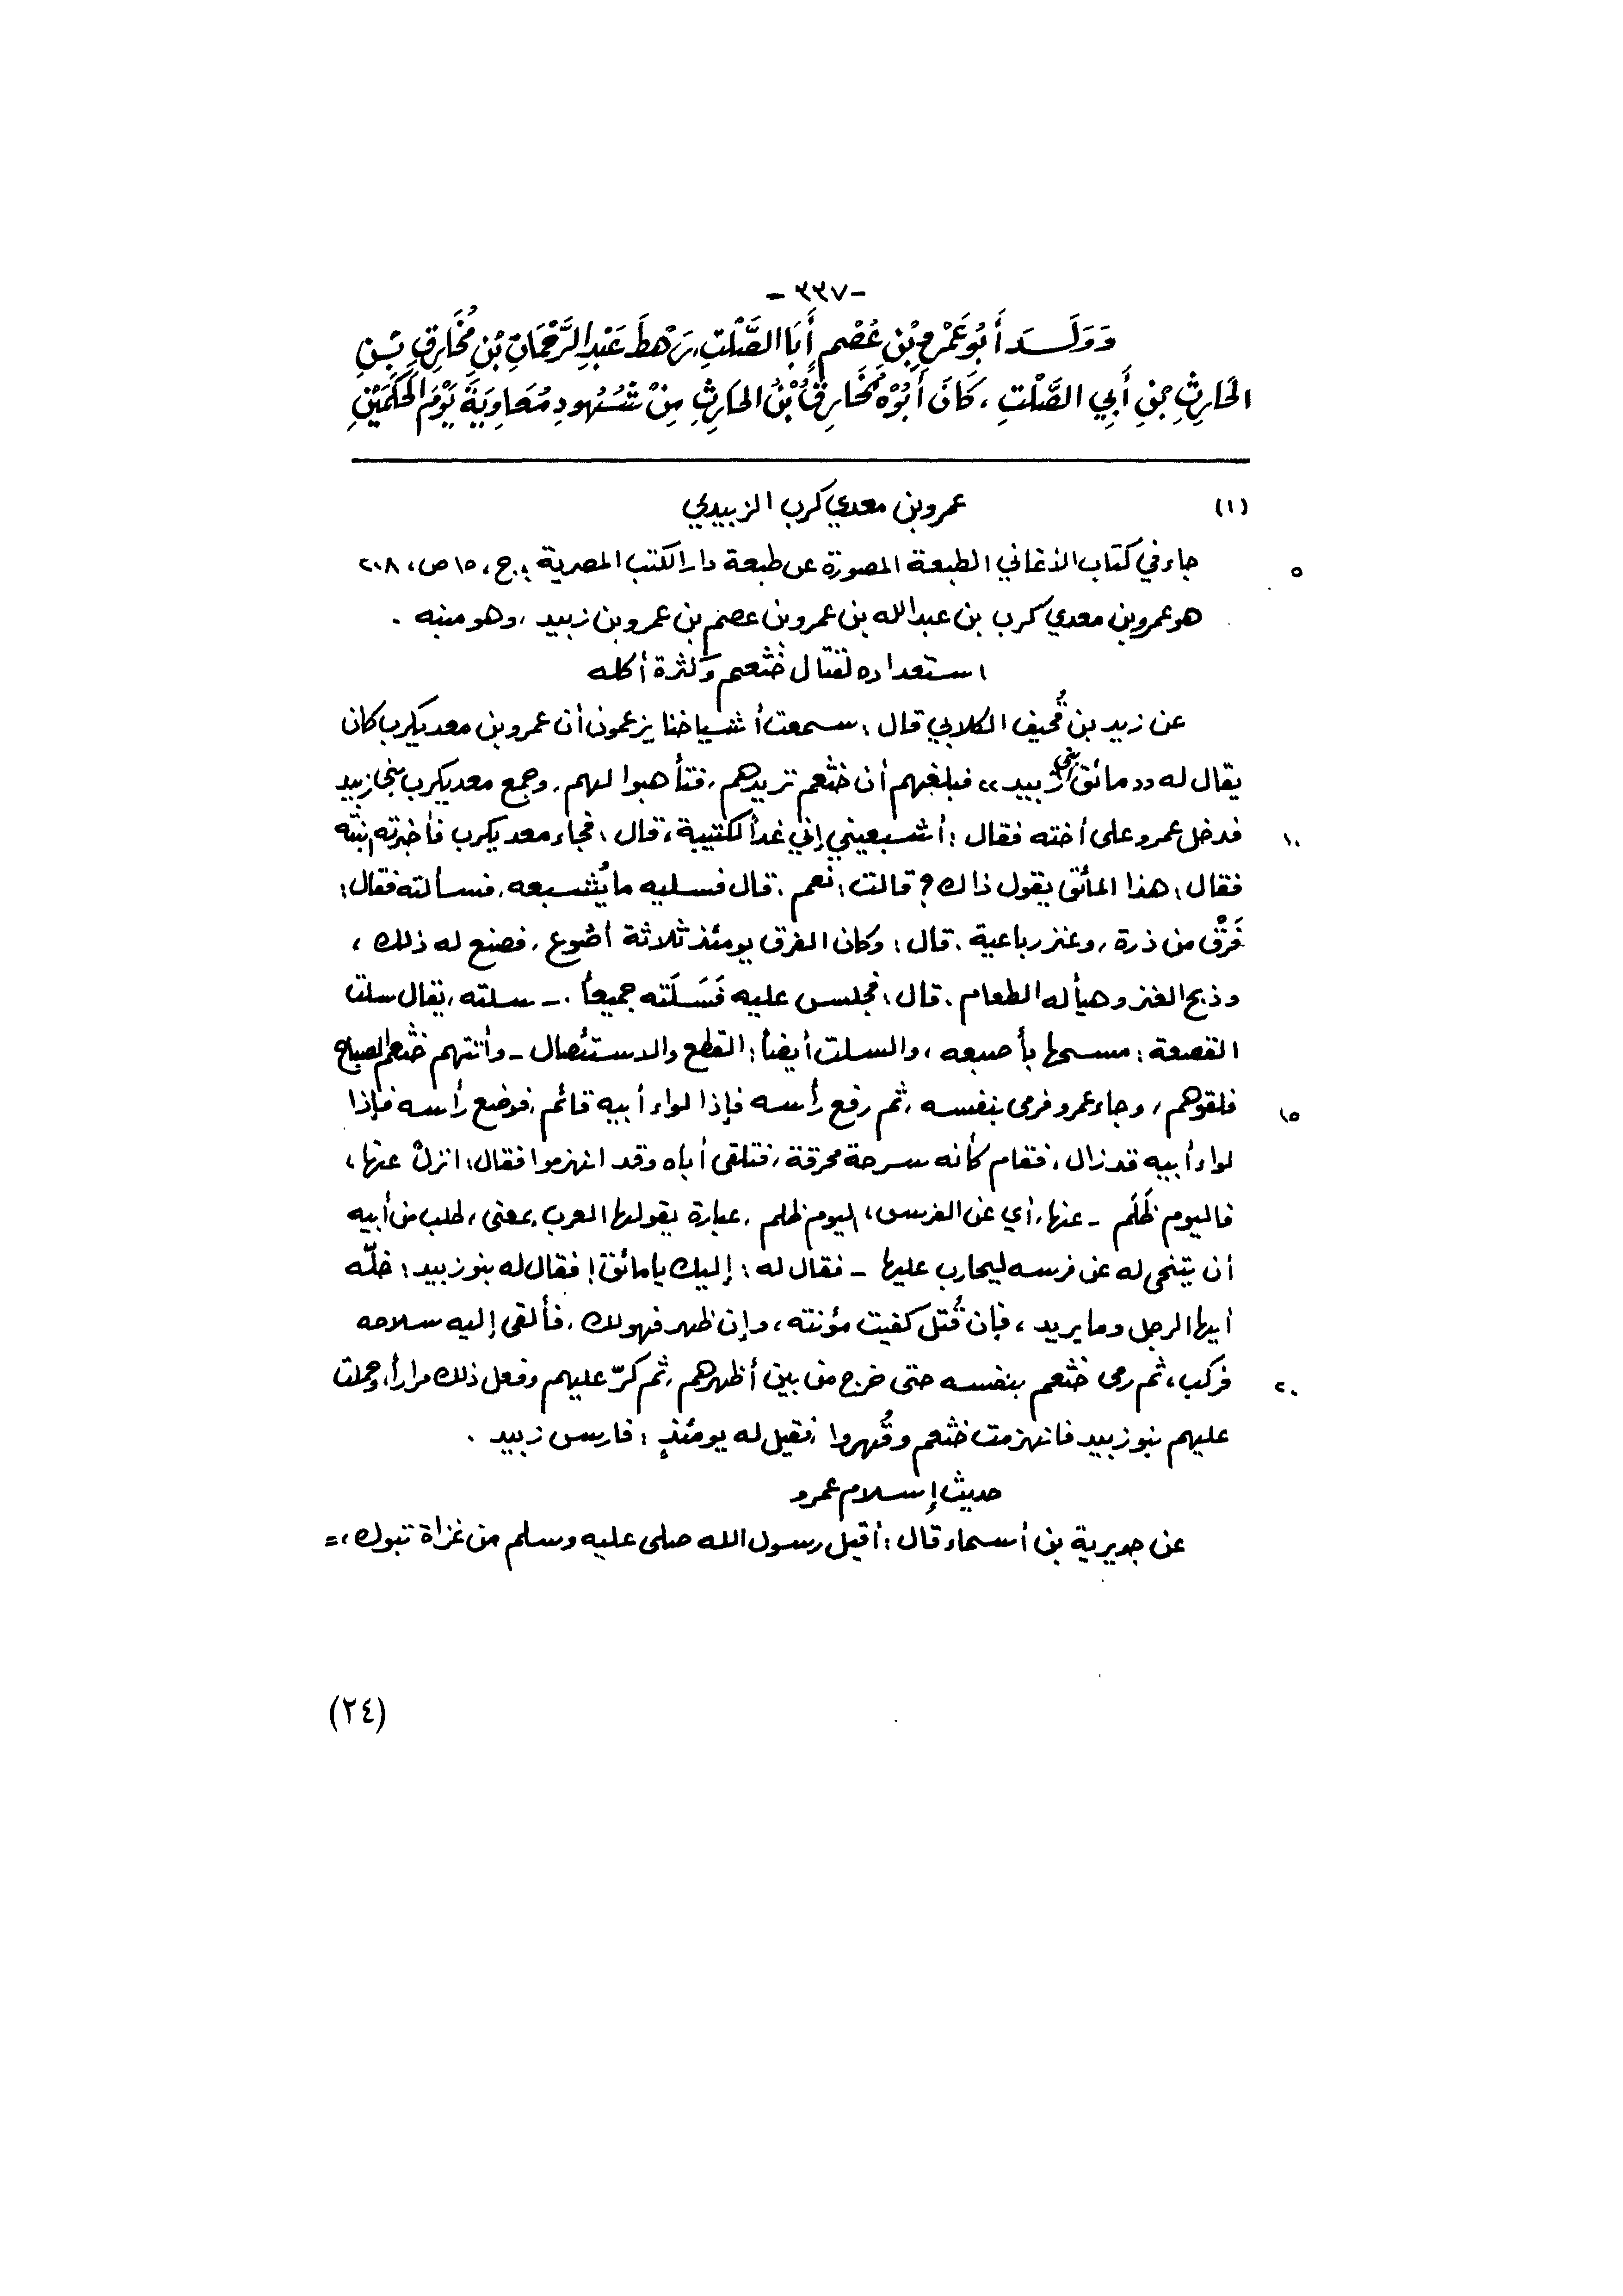 - ٣٣٧ -
وَوَلَـــدَ أَبُو عَمْرِو بْنِ عُصْمٍ أَبَا الصَّلْتِ، رَهْطَ عَبْدِ الرَّحْمَانِ بْنِ مُخَارِقِ بْـنِ
الحَارِثِ بْنِ أَبِي الصَّلْتِ ، كَانَ أَبُوْهُ مُخَارِقُ بْنُ الحَارِثِ مِنْ شُهُودِ مُعَاوِيَةَ يَوْمَ الحَكَمَيْنِ
(١) عمرو بن معدي كرب الزبيدي
٥ جاء في كتاب الأغاني الطبعة المصورة عن طبعة دار الكتب المصرية : ج ، ١٥ ص ، ٢٠٨
هو عمرو بن معدي كرب بن عبد الله بن عمرو بن عصم بن عمرو بن زبيد ، وهو منبه .
استعداده لقتال خثعم وكثرة أكله
عن زيد بن قُحيف الكلابي قال : سمعت أشياخنا يزعمون أن عمرو بن معد يكرب كان
يقال له «مائق بني زبيد» فبلغهم أن خثعم تريدهم ، فتأهبوا لهم ، وجمع معد يكرب بني زبيد
١٠ فدخل عمرو على أخته فقال : أشبعيني إني غداً لكتيبة ، قال : فجاء معد يكرب فأخبرته ابنته
فقال : هذا المائق يقول ذاك ؟ قالت : نعم . قال فسليه ما يُشبعه ، فسألته فقال :
فَرْق من ذرة ، وعنز رباعية . قال : وكان الفرق يومئذ ثلاثة أصُوع ، فصنع له ذلك ،
وذبح العنز وهيأ له الطعام . قال : فجلس عليه فَسَلَتَه جميعاً . ـ سلته ، يقال سلت
القصعة : مسحها بأصبعه ، والسلت أيضاً : القطع والاستئصال ـ وأتتهم خثعم الصباح
١٥ فلقوهم ، وجاء عمرو فرمى بنفسه ، ثم رفع رأسه فإذا لواء أبيه قائم ، فوضع رأسه فإذا
لواء أبيه قد زال ، فقام كأنه سرحة محرقة ، فتلقى أباه وقد انهزموا فقال : انزلْ عنها ،
فاليوم ظَلَم ـ عنها ، أي عن الفرس ، اليوم ظلم ، عبارة يقولها العرب بمعنى ، طلب من أبيه
أن يتنحى له عن فرسه ليحارب عليها ـ فقال له : إليك يا مائق ! فقال له بنو زبيد : خلّه
أيها الرجل وما يريد ، فإن قُتل كفيت مؤنته ، وإن ظهر فهو لك ، فألقى إليه سلاحه
٢٠ فركب ، ثم رمى خثعم بنفسه حتى خرج من بين أظهرهم ، ثم كرّ عليهم وفعل ذلك مراراً ، وحملت
عليهم بنو زبيد فانهزمت خثعم وقُهروا ، فقيل له يومئذٍ : فارس زبيد .
حديث إسلام عمرو
عن جويرية بن أسماء قال : أقبل رسول الله صلى عليه وسلم من غزاة تبوك ، =
(٢٤)